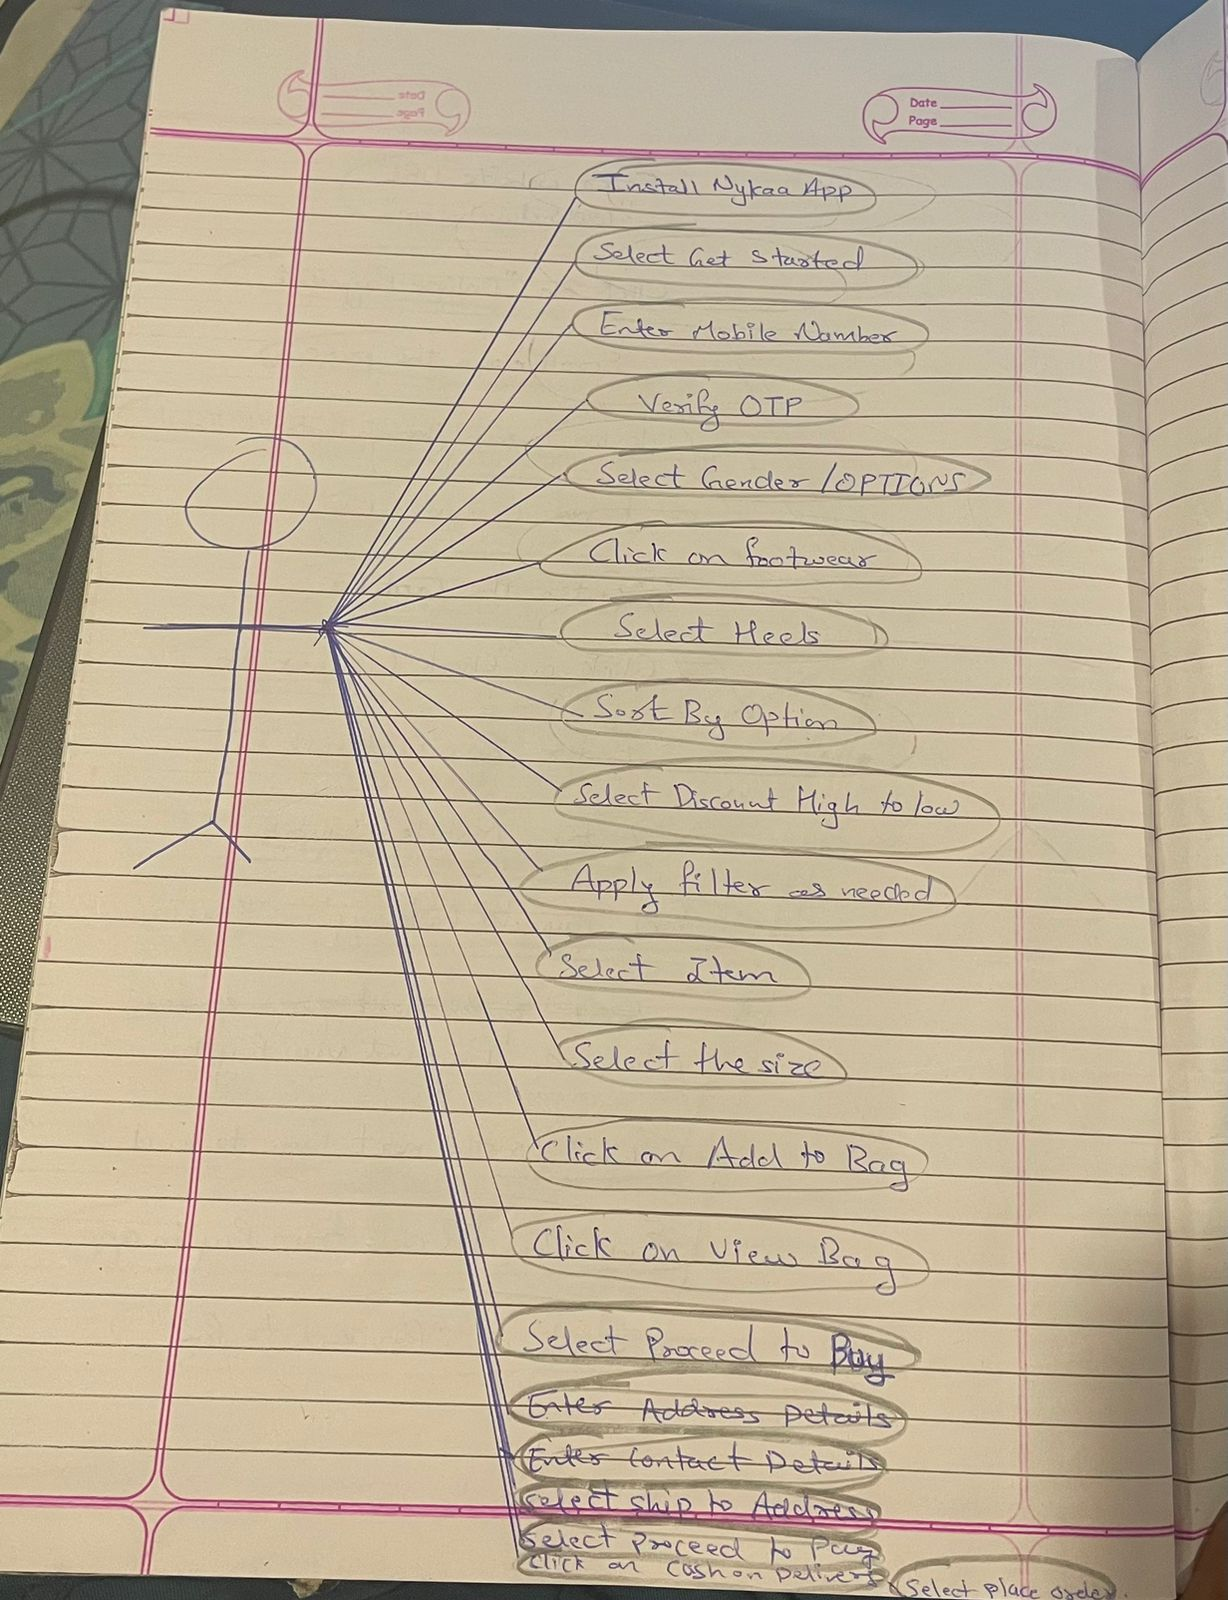 Date
Page
Install Nykaa App
Select Get Started
Enter Mobile Number
Verify OTP
Select Gender /OPTIONS
Click on footwear
Select Heels
Sort By Option
Select Discount High to low
Apply filter as needed
Select Item
Select the size
Click on Add to Bag
Click on View Bag
Select Proceed to Buy
Enter Address Details
Enter Contact Details
Select ship to Address
Select Proceed to Pay
Click on Cash on Delivery
Select place order.